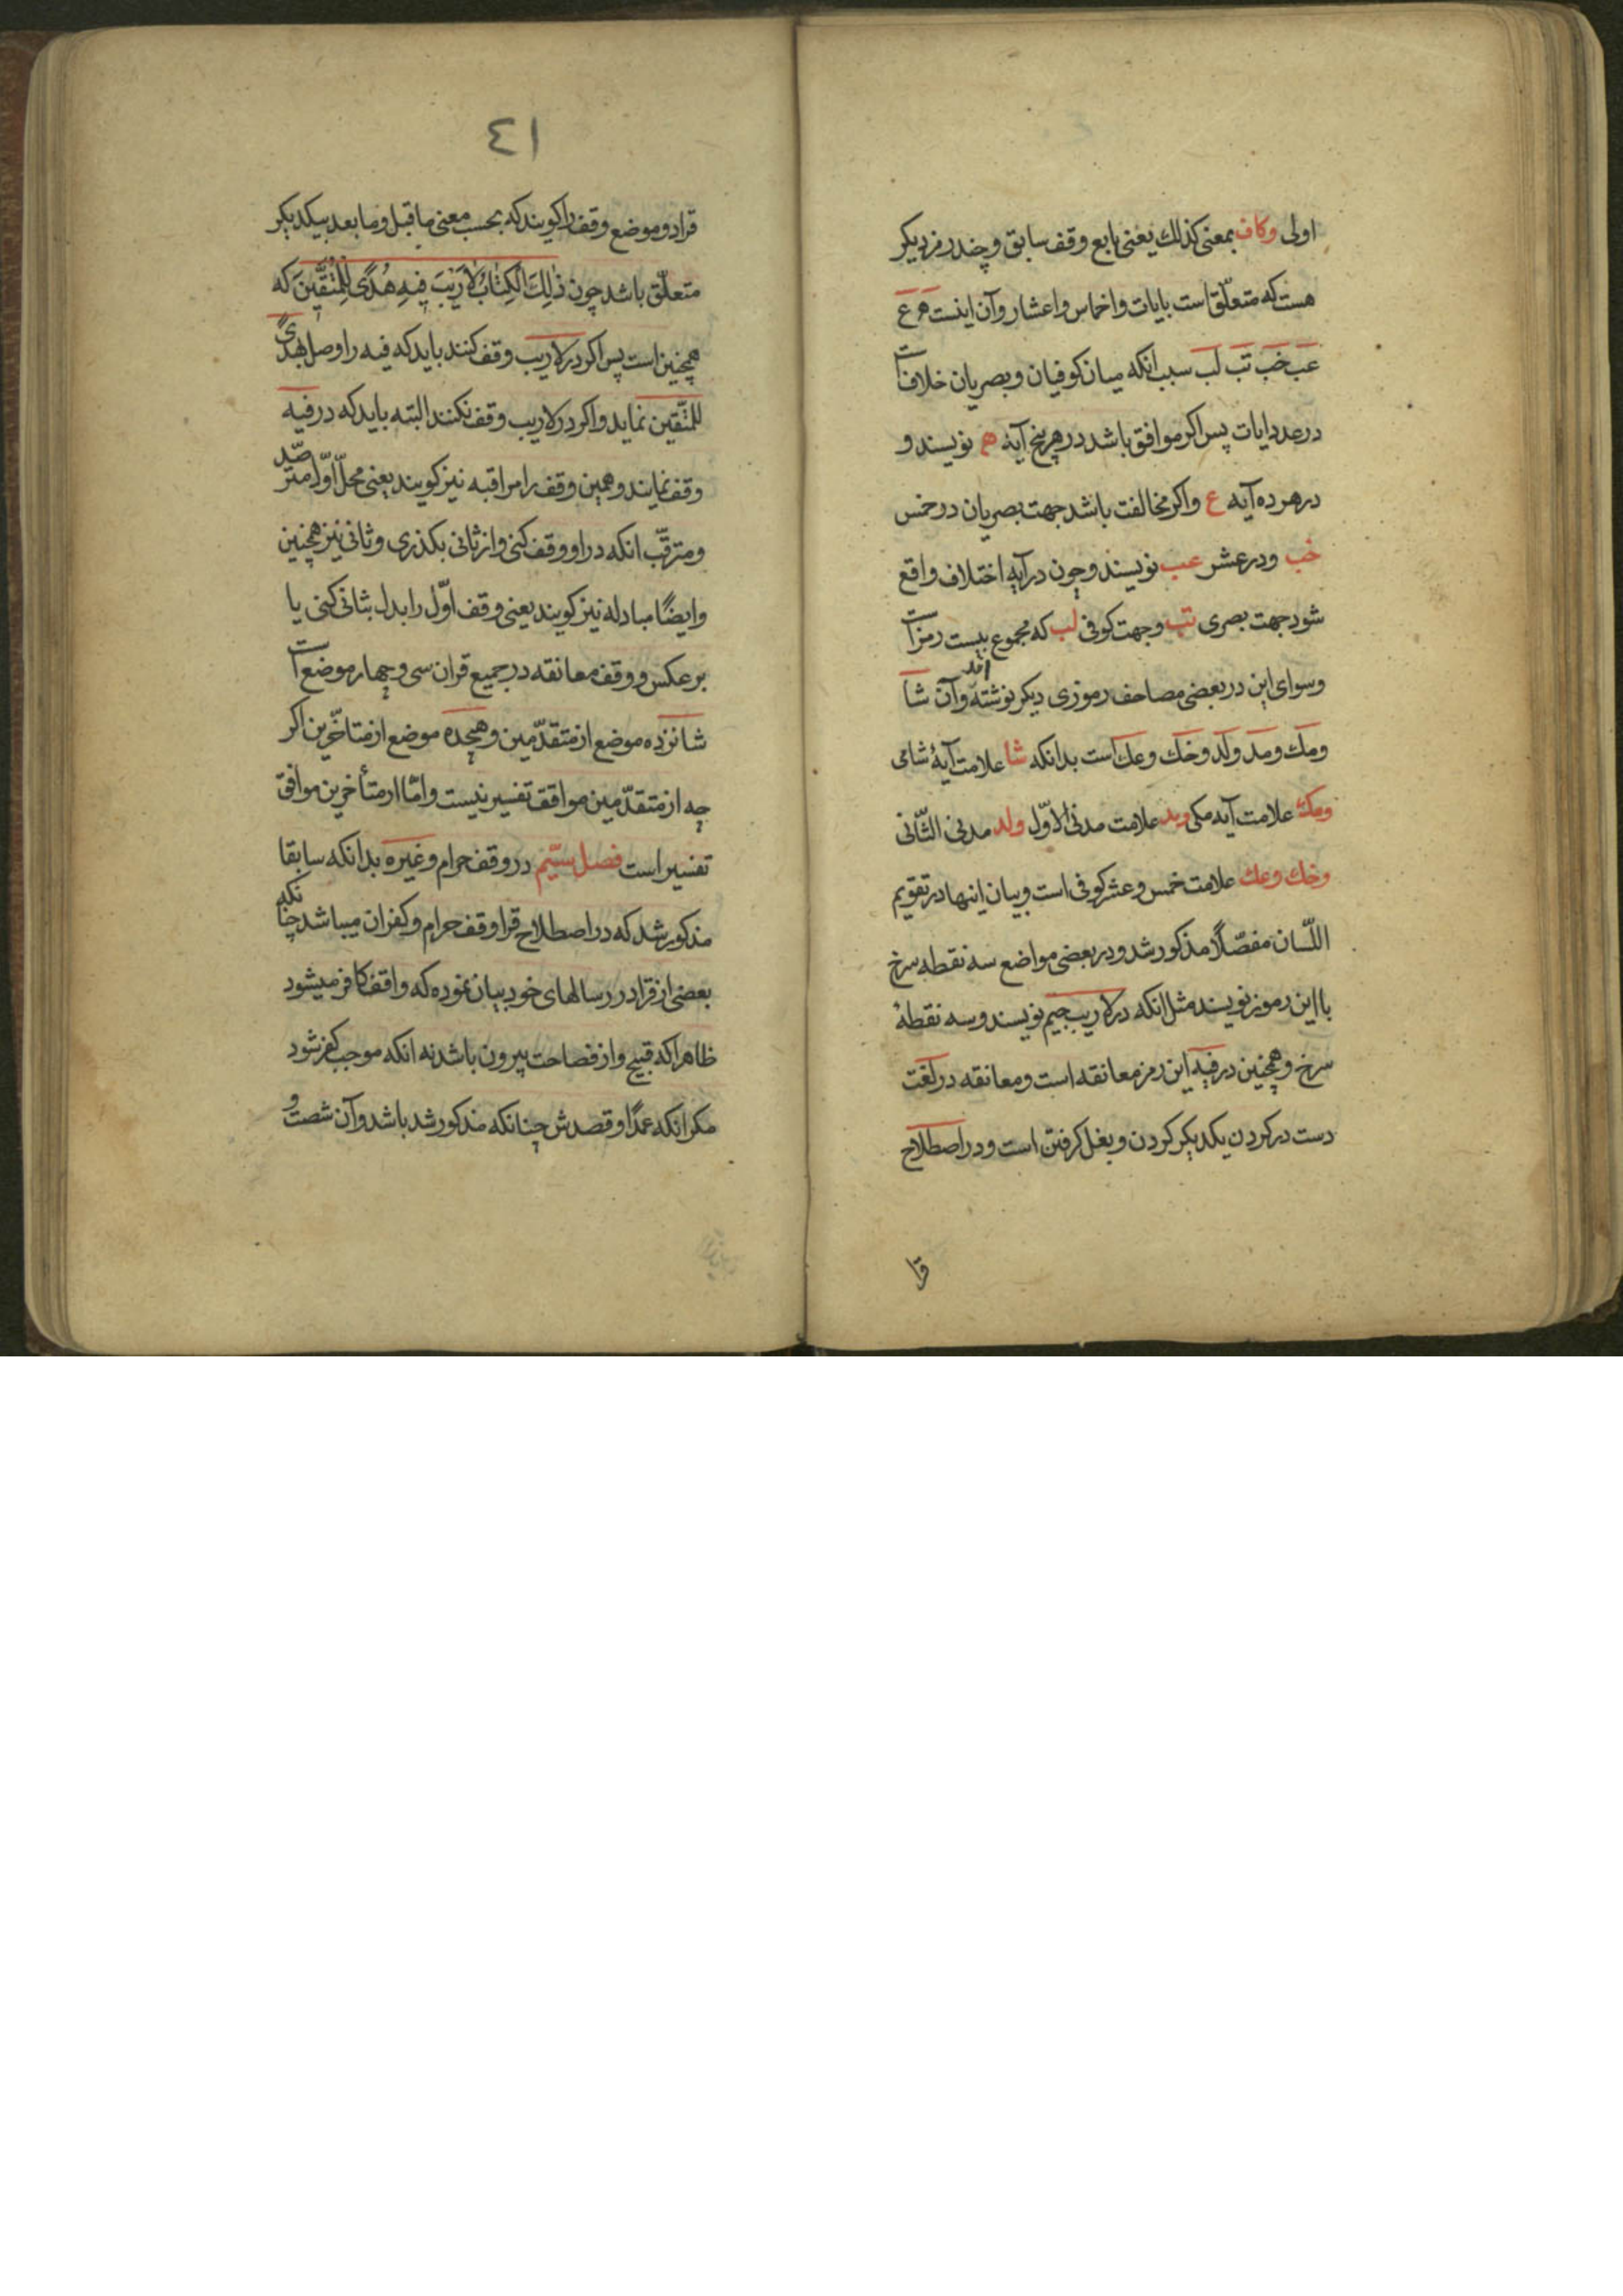 اولی وکاف بمعنی کذلك یعنی تابع وقف سابق و چند رمز دیکر
هست که متعلّق است بایات واخماس واعشار وآن اینست ه ع
عب خب تب لب سبب انکه میان کوفیان وبصریان خلاف است
در عدد ایات پس اکر موافق باشد در هر پنج آیه ه نویسند و
در هر ده آیه ع واکر مخالفت باشد جهت بصریان در خمس
خب ودر عشر عب نویسند وچون در آیه اختلاف واقع
شود جهت بصری تب وجهت کوفی لب که مجموع بیست رمز است
وسوای این در بعضی مصاحف رموزی دیکر نوشته اند وآن شا
ومك ومد ولد وخك وعك است بدانکه شا علامت آیهٔ شامی
ومك علامت آیه مکی ومد علامت مدنی الاوّل ولد مدنی الثّانی
وخك وعك علامت خمس وعشر کوفی است وبیان اینها در تقویم
اللّسان مفصّلًا مذکور شد ودر بعضی مواضع سه نقطه سرخ
با این رموز نویسند مثل انکه در لاریب جیم نویسند وسه نقطهٔ
سرخ وهمچنین در فیه این رمز معانقه است ومعانقه در لغت
دست در کردن یکدیکر کردن وبغل کرفتن است ودر اصطلاح
قرا
٤١
قراد وموضع وقف را کویند که بحسب معنی ما قبل وما بعد بیکدیکر
متعلّق باشد چون ذٰلِكَ الْکِتٰابُ لاٰ رَیْبَ فِیهِ هُدًی لِلْمُتَّقِینَ که
همچنین است پس اکر در لاریب وقف کنند باید که فیه را وصل بهدًی
للمتّقین نماید واکر در لاریب وقف نکنند البته باید که در فیه
وقف نمایند وهمین وقف را مراقبه نیز کویند یعنی محلّ اوّل مترصّد
ومترقّب انکه در او وقف کنی واز ثانی بکذری وثانی نیز همچنین
وایضًا مبادله نیز کویند یعنی وقف اوّل را بدل بثانی کنی یا
بر عکس ووقف معانقه در جمیع قران سی وچهار موضع است
شانزده موضع از متقدّمین وهیجده موضع از متاخّرین اکر
چه از متقدّمین موافق تفسیر نیست وامّا از متأخرین موافق
تفسیر است فصل سیّم در وقف حرام وغیره بدانکه سابقا
مذکور شد که در اصطلاح قرا وقف حرام وکفران میباشد چنانکه
بعضی از قراد در رسالهای خود بیان نموده که واقف کافر میشود
ظاهرا که قبیح واز فصاحت بیرون باشد نه انکه موجب کفر شود
مکر انکه عمدًا وقصدش چنانکه مذکور شد باشد وآن شصت و